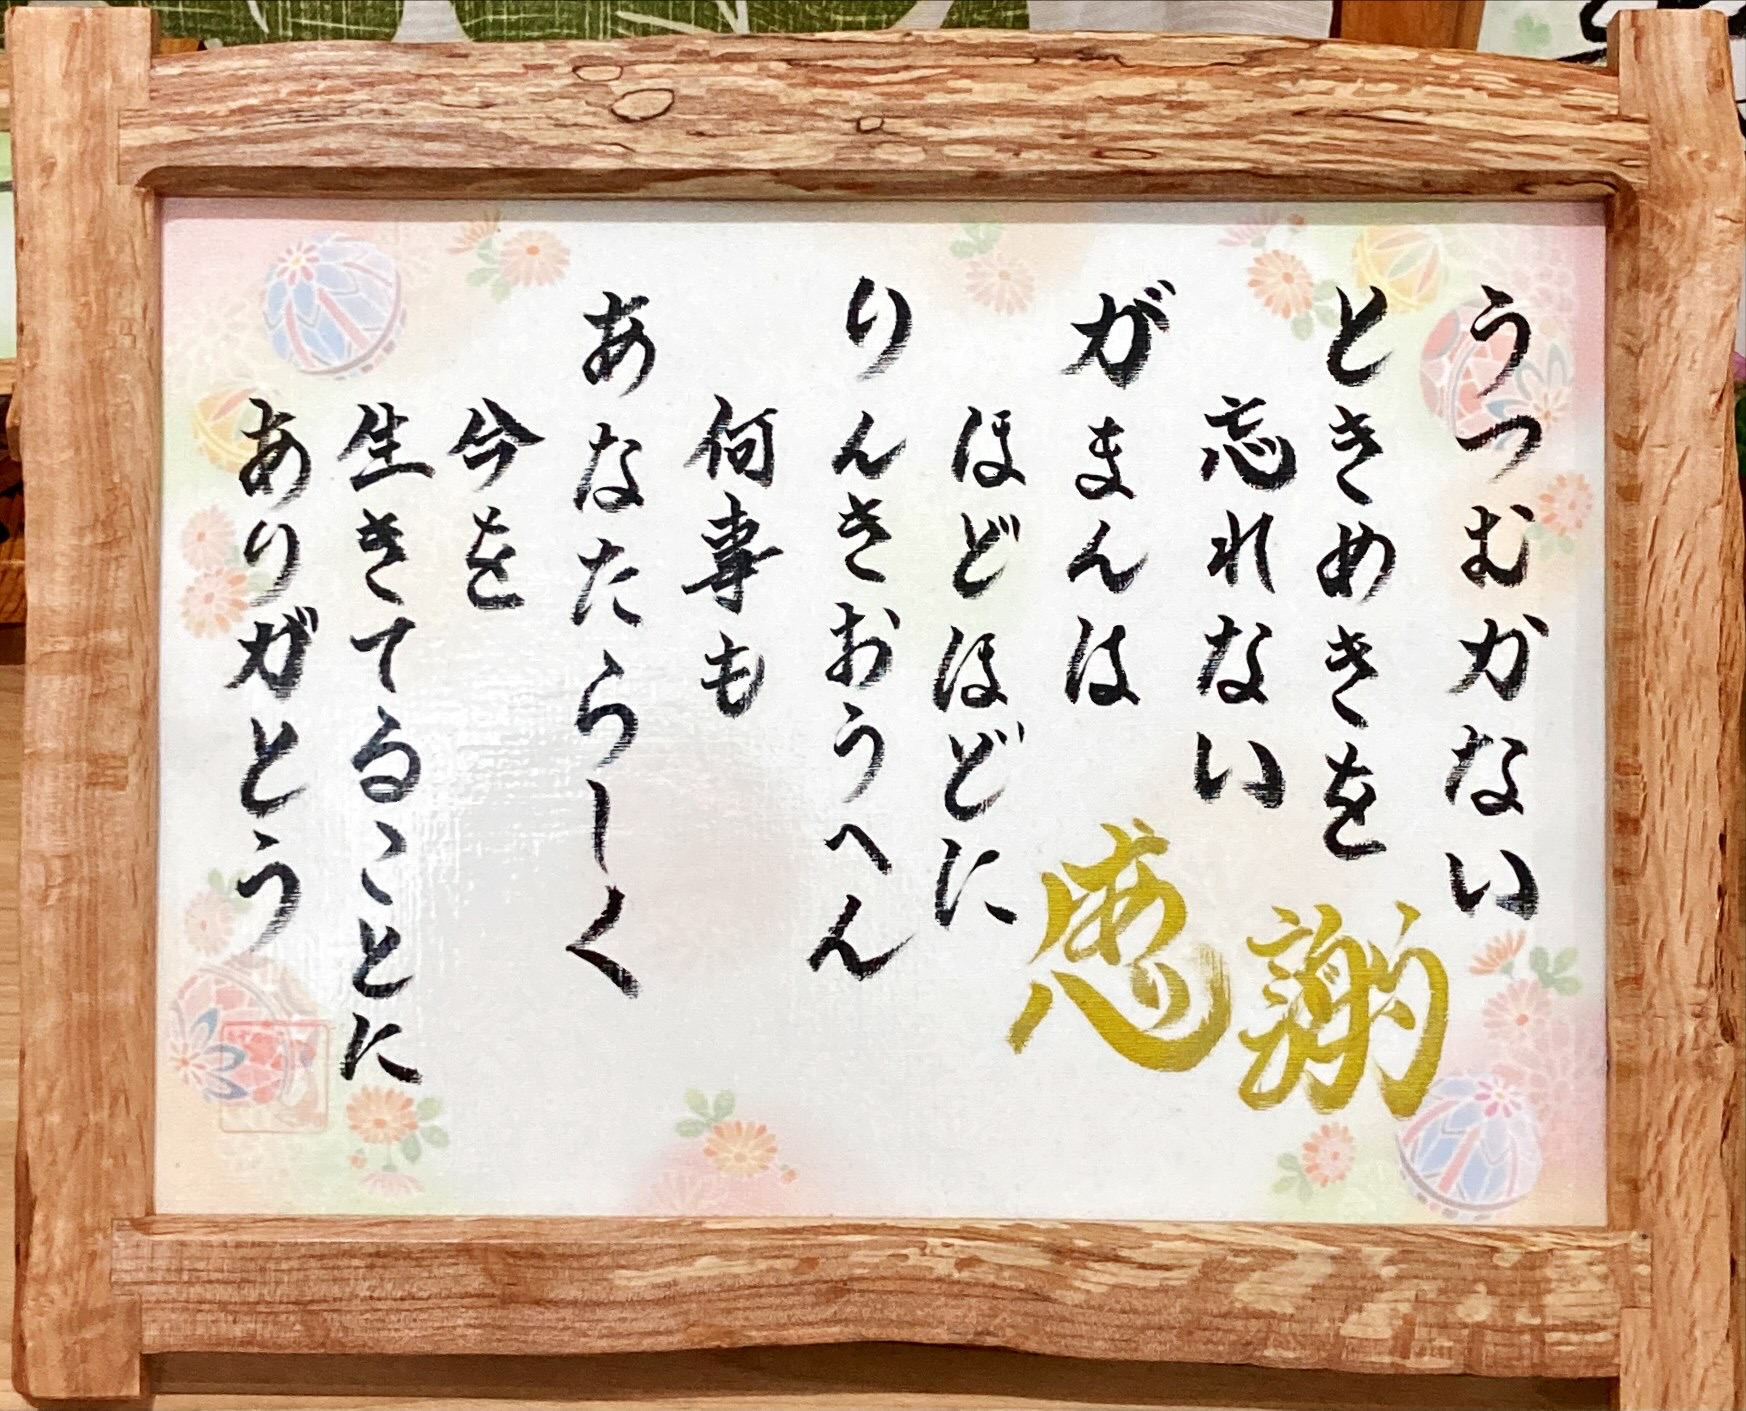 うつむかない
ときめきを
忘れない
がまんは
ほどほどに
りんきおうへん
何事も
あなたらしく
今を
生きてることに
ありがとう
感謝